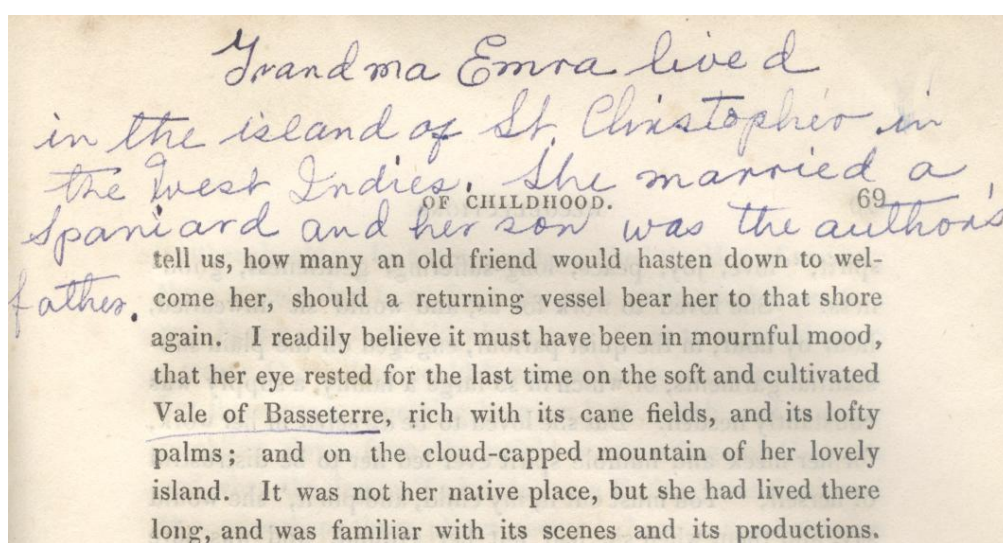 Grandma Emra lived
in the island of St. Christopher in
the West Indies. She married a
OF CHILDHOOD. 69
Spaniard and her son was the author's
father.
tell us, how many an old friend would hasten down to wel-
come her, should a returning vessel bear her to that shore
again. I readily believe it must have been in mournful mood,
that her eye rested for the last time on the soft and cultivated
Vale of Basseterre, rich with its cane fields, and its lofty
palms; and on the cloud-capped mountain of her lovely
island. It was not her native place, but she had lived there
long, and was familiar with its scenes and its productions.